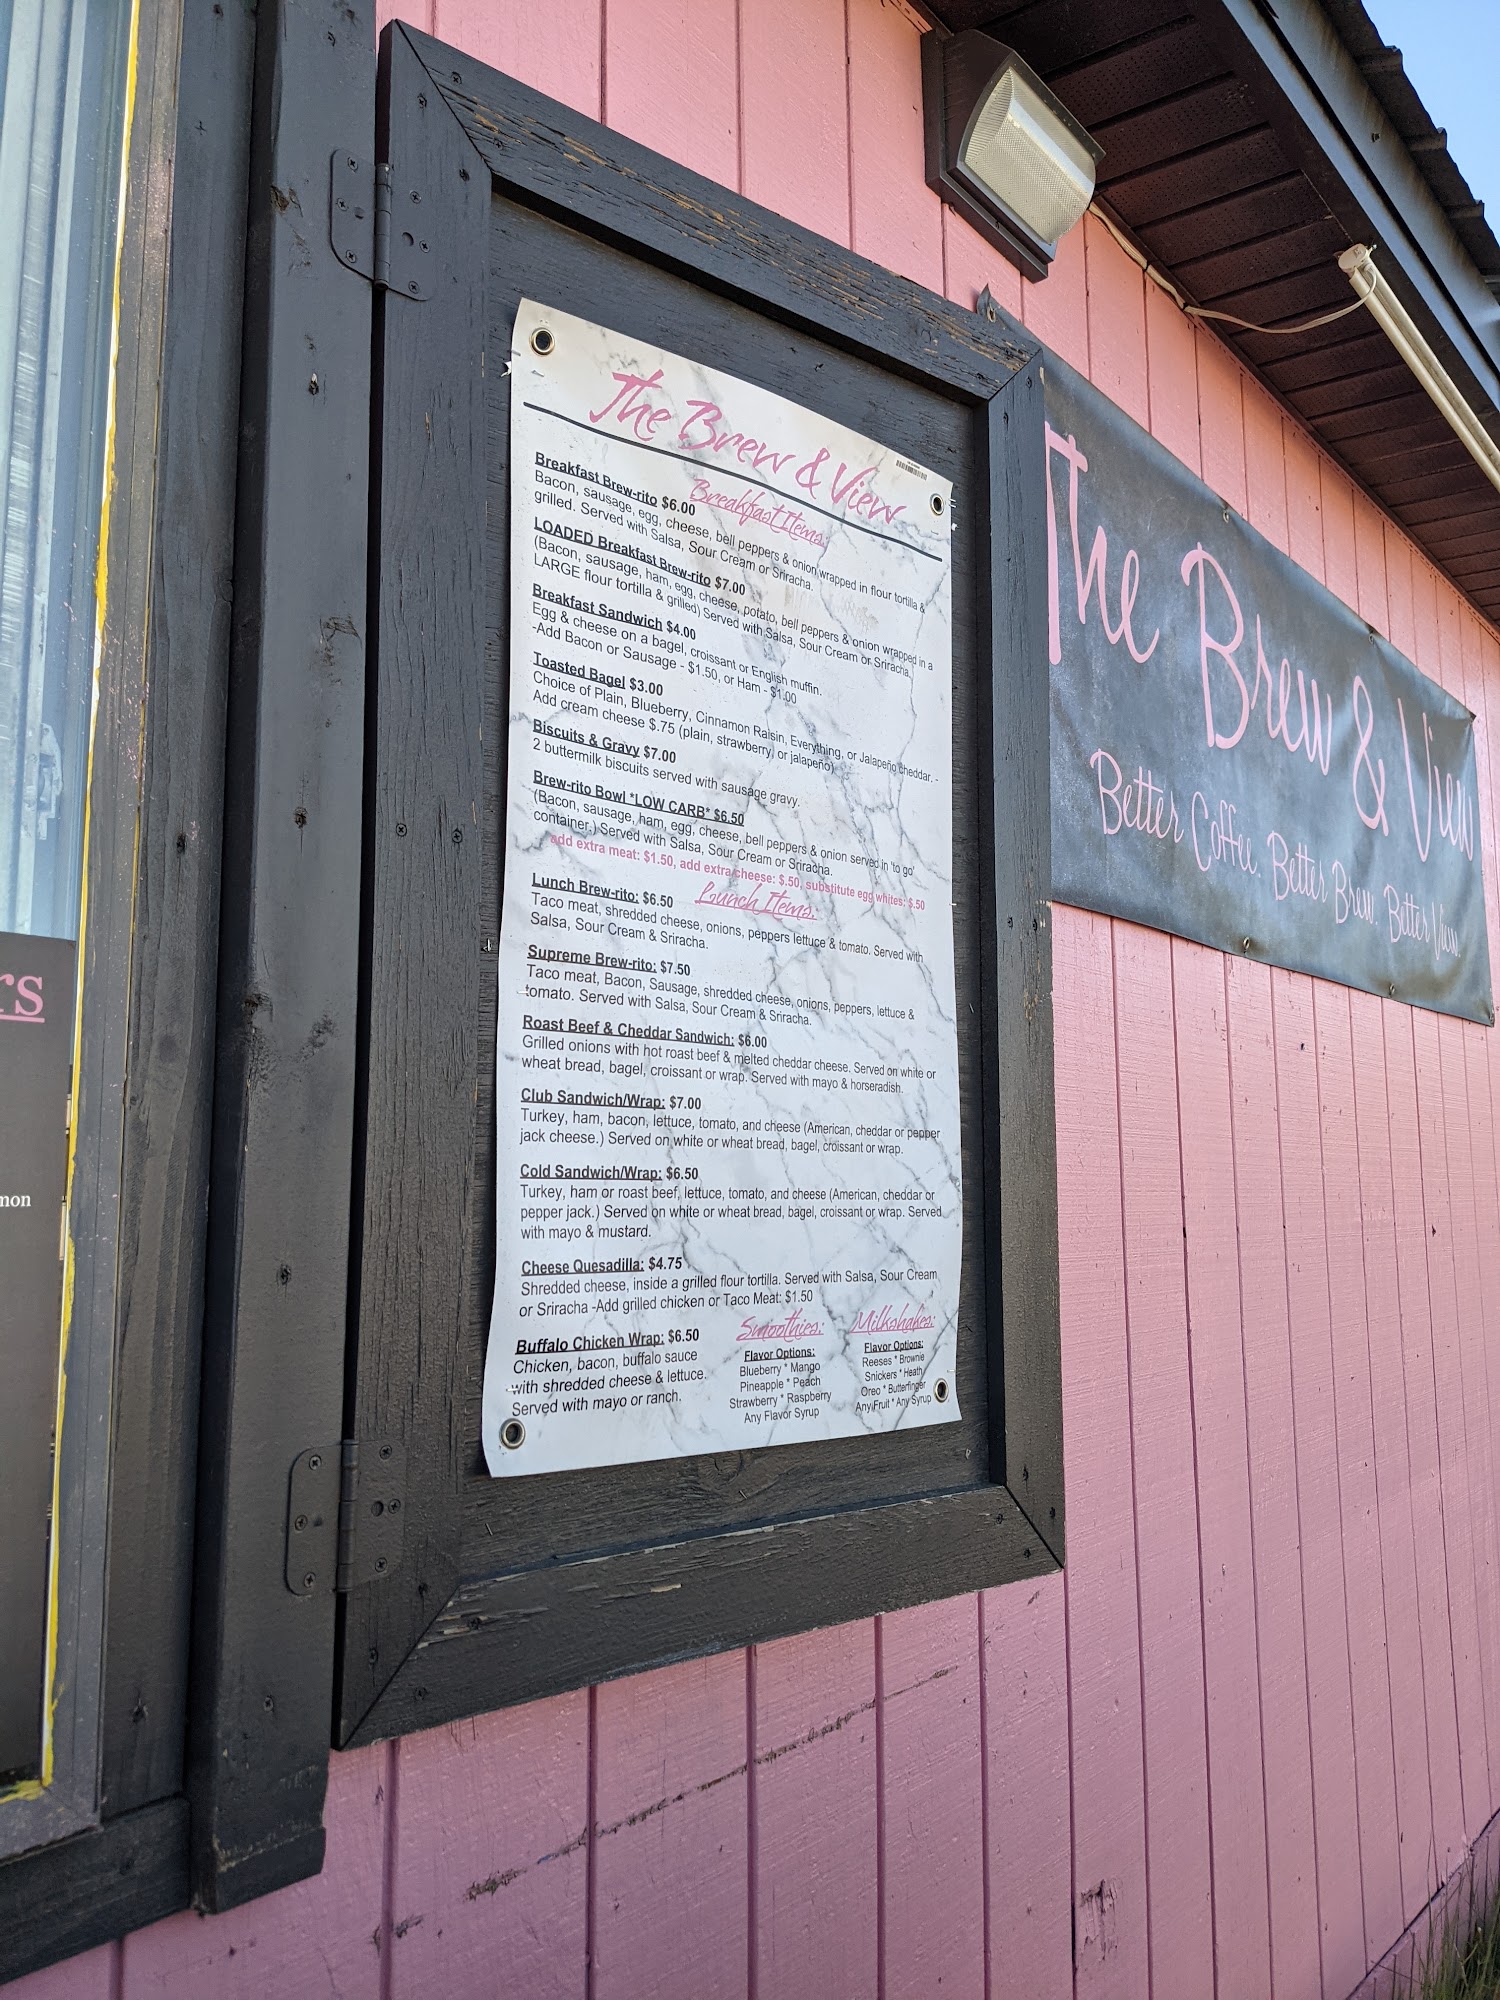 The Brew & View
Breakfast Items:
Breakfast Brew-rito $6.00
Bacon, sausage, egg, cheese, bell peppers & onion wrapped in flour tortilla &
grilled. Served with Salsa, Sour Cream or Sriracha.
LOADED Breakfast Brew-rito $7.00
(Bacon, sausage, ham, egg, cheese, potato, bell peppers & onion wrapped in a
LARGE flour tortilla & grilled) Served with Salsa, Sour Cream or Sriracha,
Breakfast Sandwich $4.00
Egg & cheese on a bagel, croissant or English muffin.
-Add Bacon or Sausage - $1.50, or Ham - $1.00
Toasted Bagel $3.00
Choice of Plain, Blueberry, Cinnamon Raisin, Everything, or Jalapeño cheddar. -
Add cream cheese $.75 (plain, strawberry, or jalapeño)
Biscuits & Gravy $7.00
2 buttermilk biscuits served with sausage gravy.
Brew-rito Bowl *LOW CARB* $6.50
(Bacon, sausage, ham, egg, cheese, bell peppers & onion served in 'to go'
container.) Served with Salsa, Sour Cream or Sriracha.
add extra meat: $1.50, add extra cheese: $.50, substitute egg whites: $.50
Lunch Items:
Lunch Brew-rito: $6.50
Taco meat, shredded cheese, onions, peppers lettuce & tomato. Served with
Salsa, Sour Cream & Sriracha.
Supreme Brew-rito: $7.50
Taco meat, Bacon, Sausage, shredded cheese, onions, peppers, lettuce &
tomato. Served with Salsa, Sour Cream & Sriracha.
Roast Beef & Cheddar Sandwich: $6.00
Grilled onions with hot roast beef & melted cheddar cheese. Served on white or
wheat bread, bagel, croissant or wrap. Served with mayo & horseradish.
Club Sandwich/Wrap: $7.00
Turkey, ham, bacon, lettuce, tomato, and cheese (American, cheddar or pepper
jack cheese.) Served on white or wheat bread, bagel, croissant or wrap.
Cold Sandwich/Wrap: $6.50
Turkey, ham or roast beef, lettuce, tomato, and cheese (American, cheddar or
pepper jack.) Served on white or wheat bread, bagel, croissant or wrap. Served
with mayo & mustard.
Cheese Quesadilla: $4.75
Shredded cheese, inside a grilled flour tortilla. Served with Salsa, Sour Cream
or Sriracha -Add grilled chicken or Taco Meat: $1.50
Buffalo Chicken Wrap: $6.50
Chicken, bacon, buffalo sauce
with shredded cheese & lettuce.
Served with mayo or ranch.
Smoothies:
Flavor Options:
Blueberry * Mango
Pineapple * Peach
Strawberry * Raspberry
Any Flavor Syrup
Milkshakes:
Flavor Options:
Reeses * Brownie
Snickers * Heath
Oreo * Butterfinger
Any Fruit * Any Syrup
The Brew & View
Better Coffee. Better Brew. Better View.
rs
mon